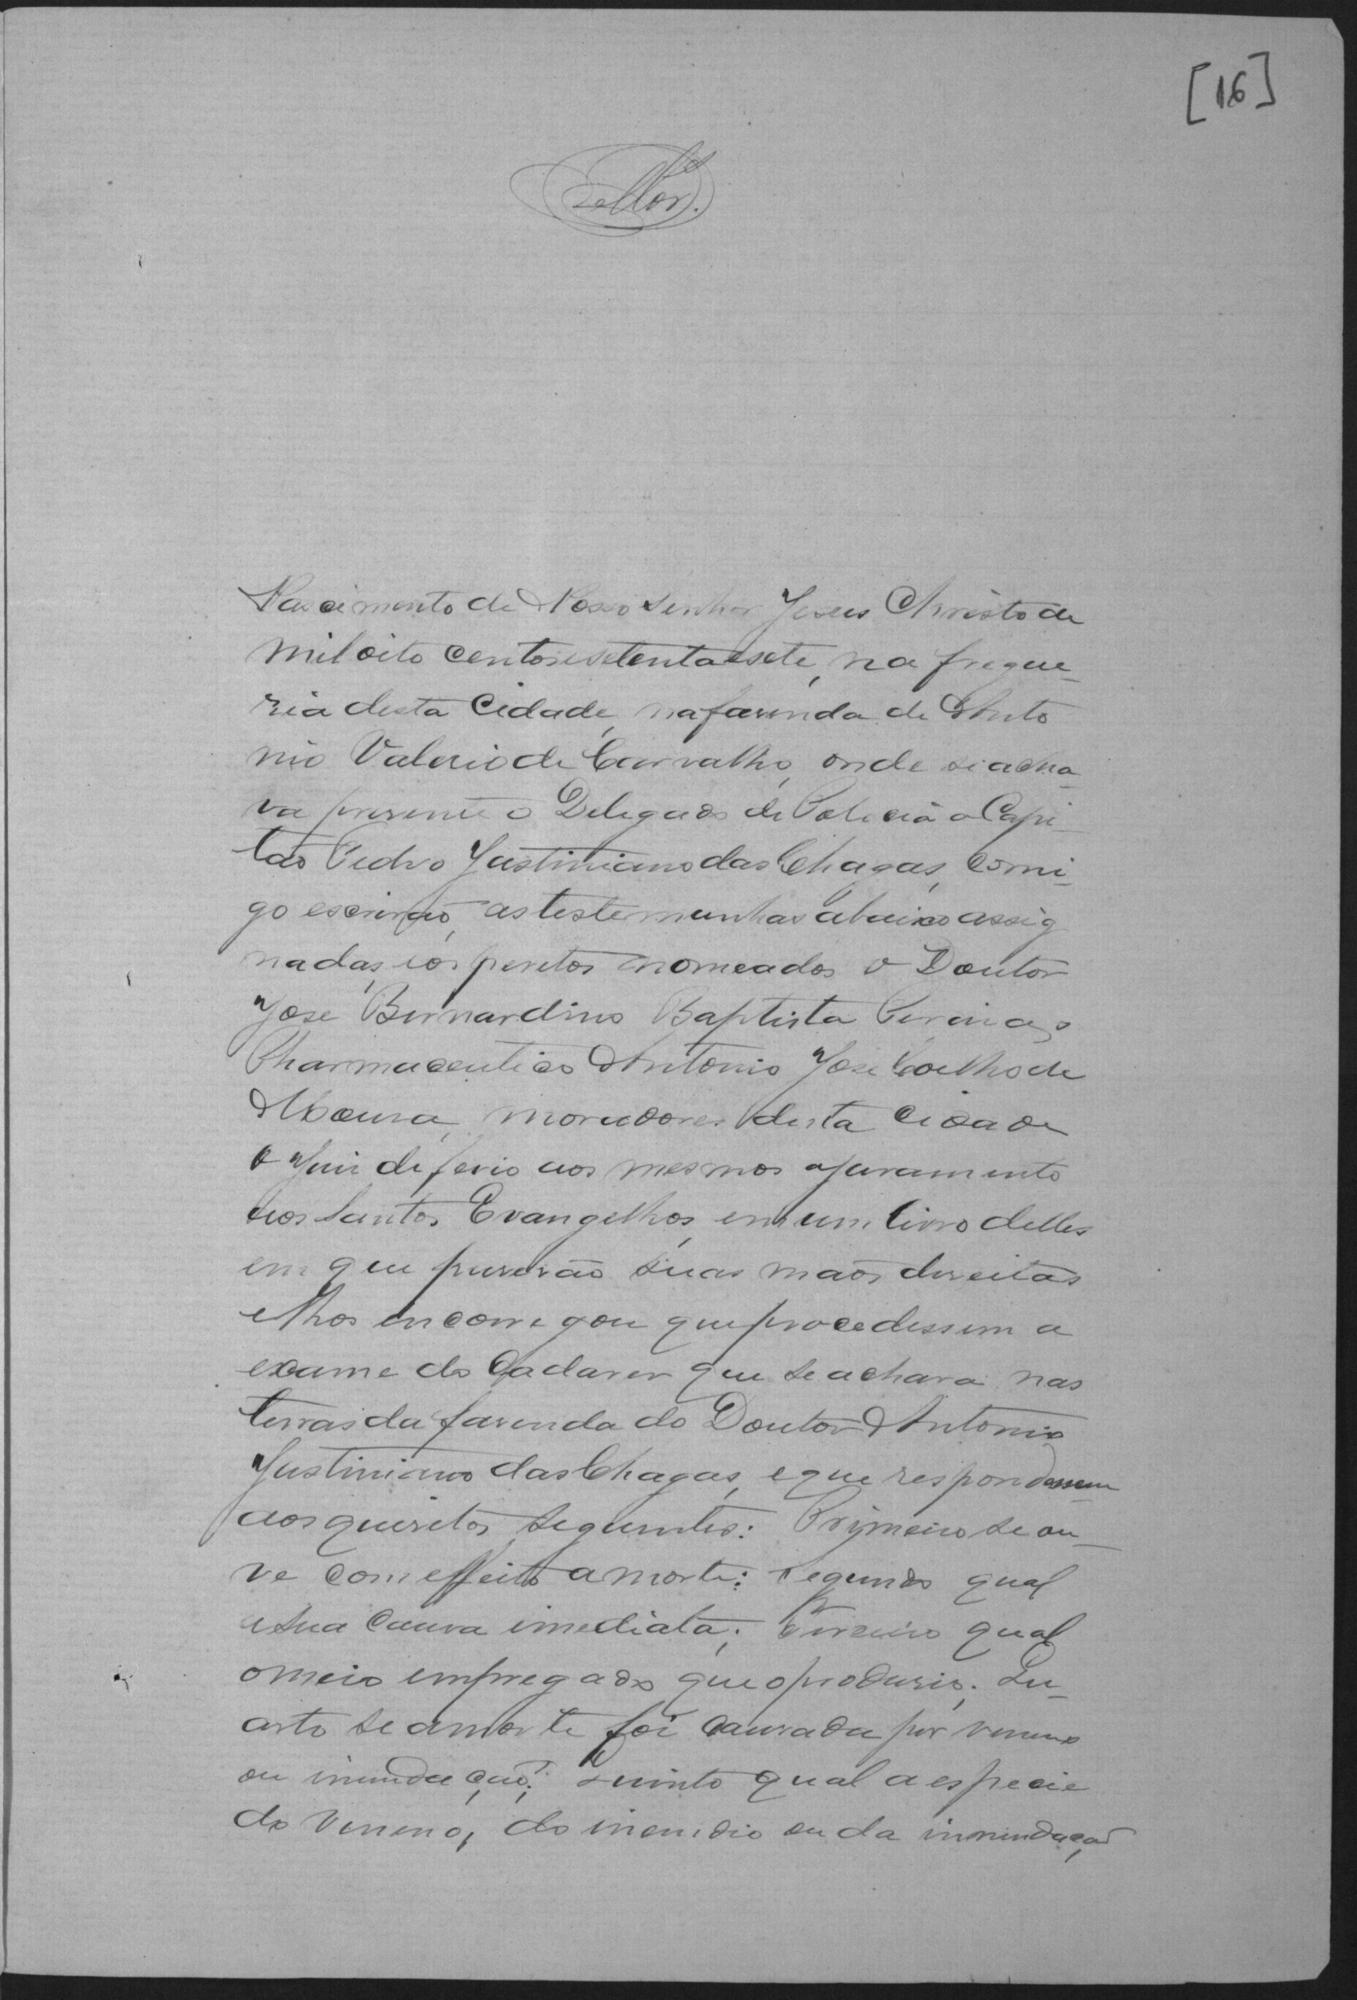 [16]
Nascimento de Nosso Senhor Jesus Christo de
mil oito centos e setenta e sete, na fregue-
zia desta Cidade, na fazenda de Anto
nio Valerio de Carvalho, onde se acha-
va presente o Delegado de Policia o Capi-
tão Pedro Justiniano das Chagas, comi-
go escrivão, as testemunhas abaixo assig
nadas, e os peretos nomeados o Doutor
Jose Bernardino Baptista Pereira, o
Pharmaceutico Antonio Jose Coelho de
Moura, moradores desta cidade
o Juiz deferio aos mesmos o juramento
aos Santos Evangelhos, em um livro delles
em que puserão suas mãos direitas
e lhos encarregou que procedessem a
exame do Cadaver que se achava nas
terras da fazenda do Doutor Antonio
Justiniano das Chagas, e que respondessem
aos quisitos seguintes: Primeiro se ou-
ve com effeito a morte: segundo qual
a sua causa imediata; Terceiro qual
o meio empregado que o produsio; Qu-
arto se a morte foi causada por veneno
ou inundação; Quinto qual a especie
do veneno, do incendio ou da innundação